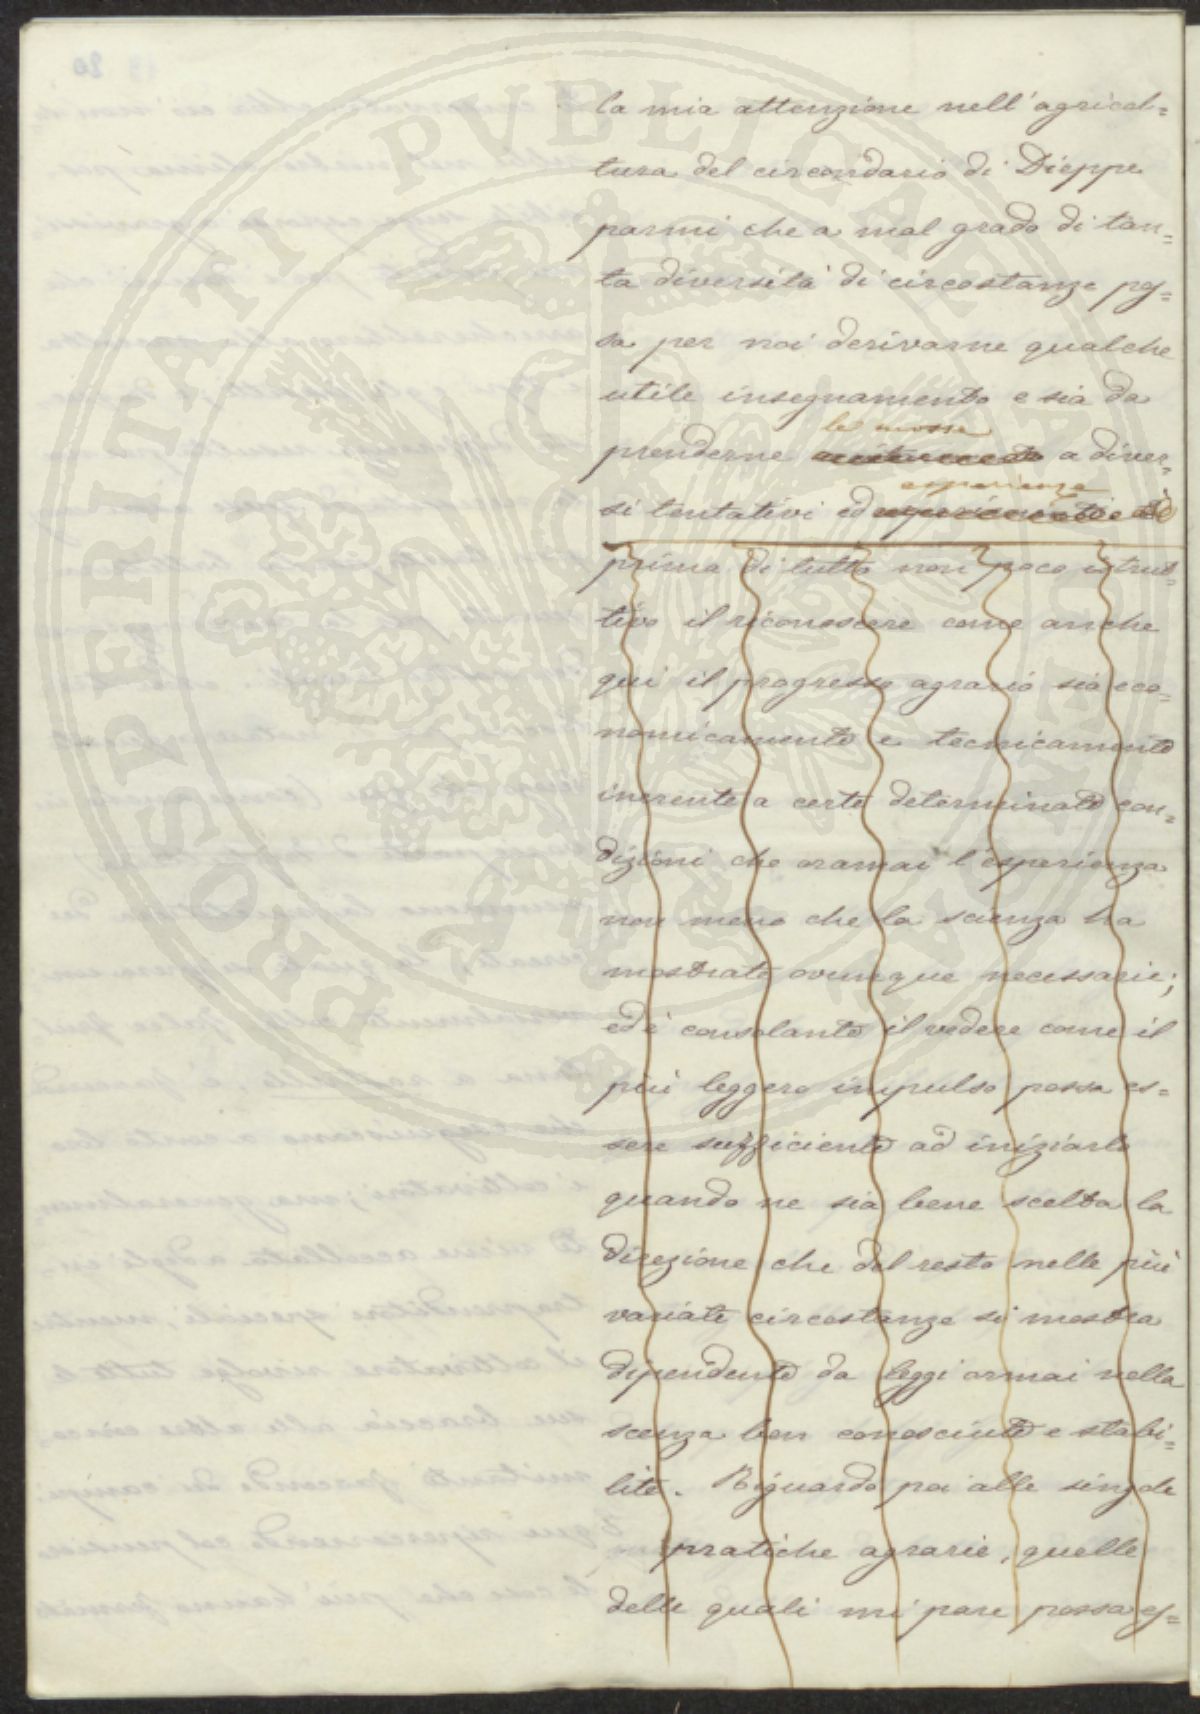 PROSPERITATI PVBLICAE
la mia attenzione nell'agricol=
tura del circondario di Dieppe
parmi che a mal grado di tan=
ta diversità di circostanze pos=
sa per noi derivarne qualche
utile insegnamento e sia da
le mosse
prenderne a diver=
esperienze
si tentativi ed È
prima di tutto non poco istrut=
tivo il riconoscere come anche
qui il progresso agrario sia eco=
nomicamente e tecnicamente
inerente a certe determinate con=
dizioni che oramai l'esperienza
non meno che la scienza ha
mostrate ovunque necessarie;
ed è consolante il vedere come il
più leggero impulso possa es=
sere sufficiente ad iniziarlo
quando ne sia bene scelta la
direzione che del resto nelle più
variate circostanze si mostra
dipendente da leggi ormai nella
scenza ben conosciute e stabi=
lite. Riguardo poi alle singole
pratiche agrarie, quelle
delle quali mi pare possa es=